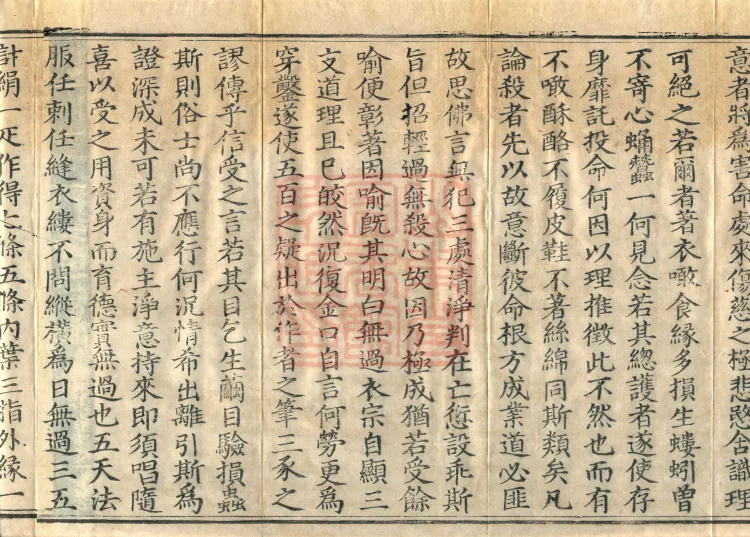 意者將為害命處來傷慈之極悲愍含識理
可絕之若爾者著衣噉食緣多損生螻蚓曽
不寄心蛹蠶一何見念若其緫護者遂使存
身靡託投命何因以理推徵此不然也而有
不噉酥酪不履皮鞋不著絲綿同斯類矣凡
論殺者先以故意斷彼命根方成業道必匪
故思佛言無犯三處清淨判在亡愆設乖斯
旨但招輕過無殺心故因乃極成猶若受餘
喻便彰著因喻旣其明白無過衣宗自顯三
文道理且已皎然況復金口自言何勞更為
穿鑿遂使五百之疑出於作者之筆三豕之
謬傳乎信受之言若其自乞生繭目驗損蟲
斯則俗士尚不應行何況情希出離引斯為
證深成未可若有施主淨意持來即須唱隨
喜以受之用資身而育德實無過也五天法
服任刺任縫衣縷不問縱橫為日無過三五
計絹一疋作得七條五條內葉三指外緣一